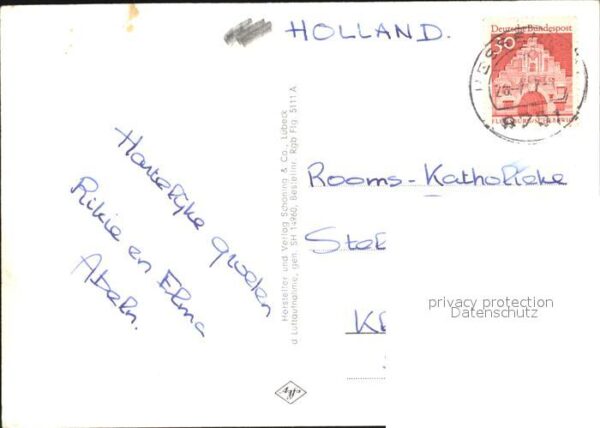 HOLLAND.
Deutsche Bundespost
30
Hartelijke groeten
Rikie en Elma
Abeln.
Hersteller und Verlag Schöning & Co., Lübeck
Luftaufnahme, gen. SH 14960, Bestellnr. Rgb Flg. 5111 A
Rooms-Katholieke
Ste
K
privacy protection
Datenschutz